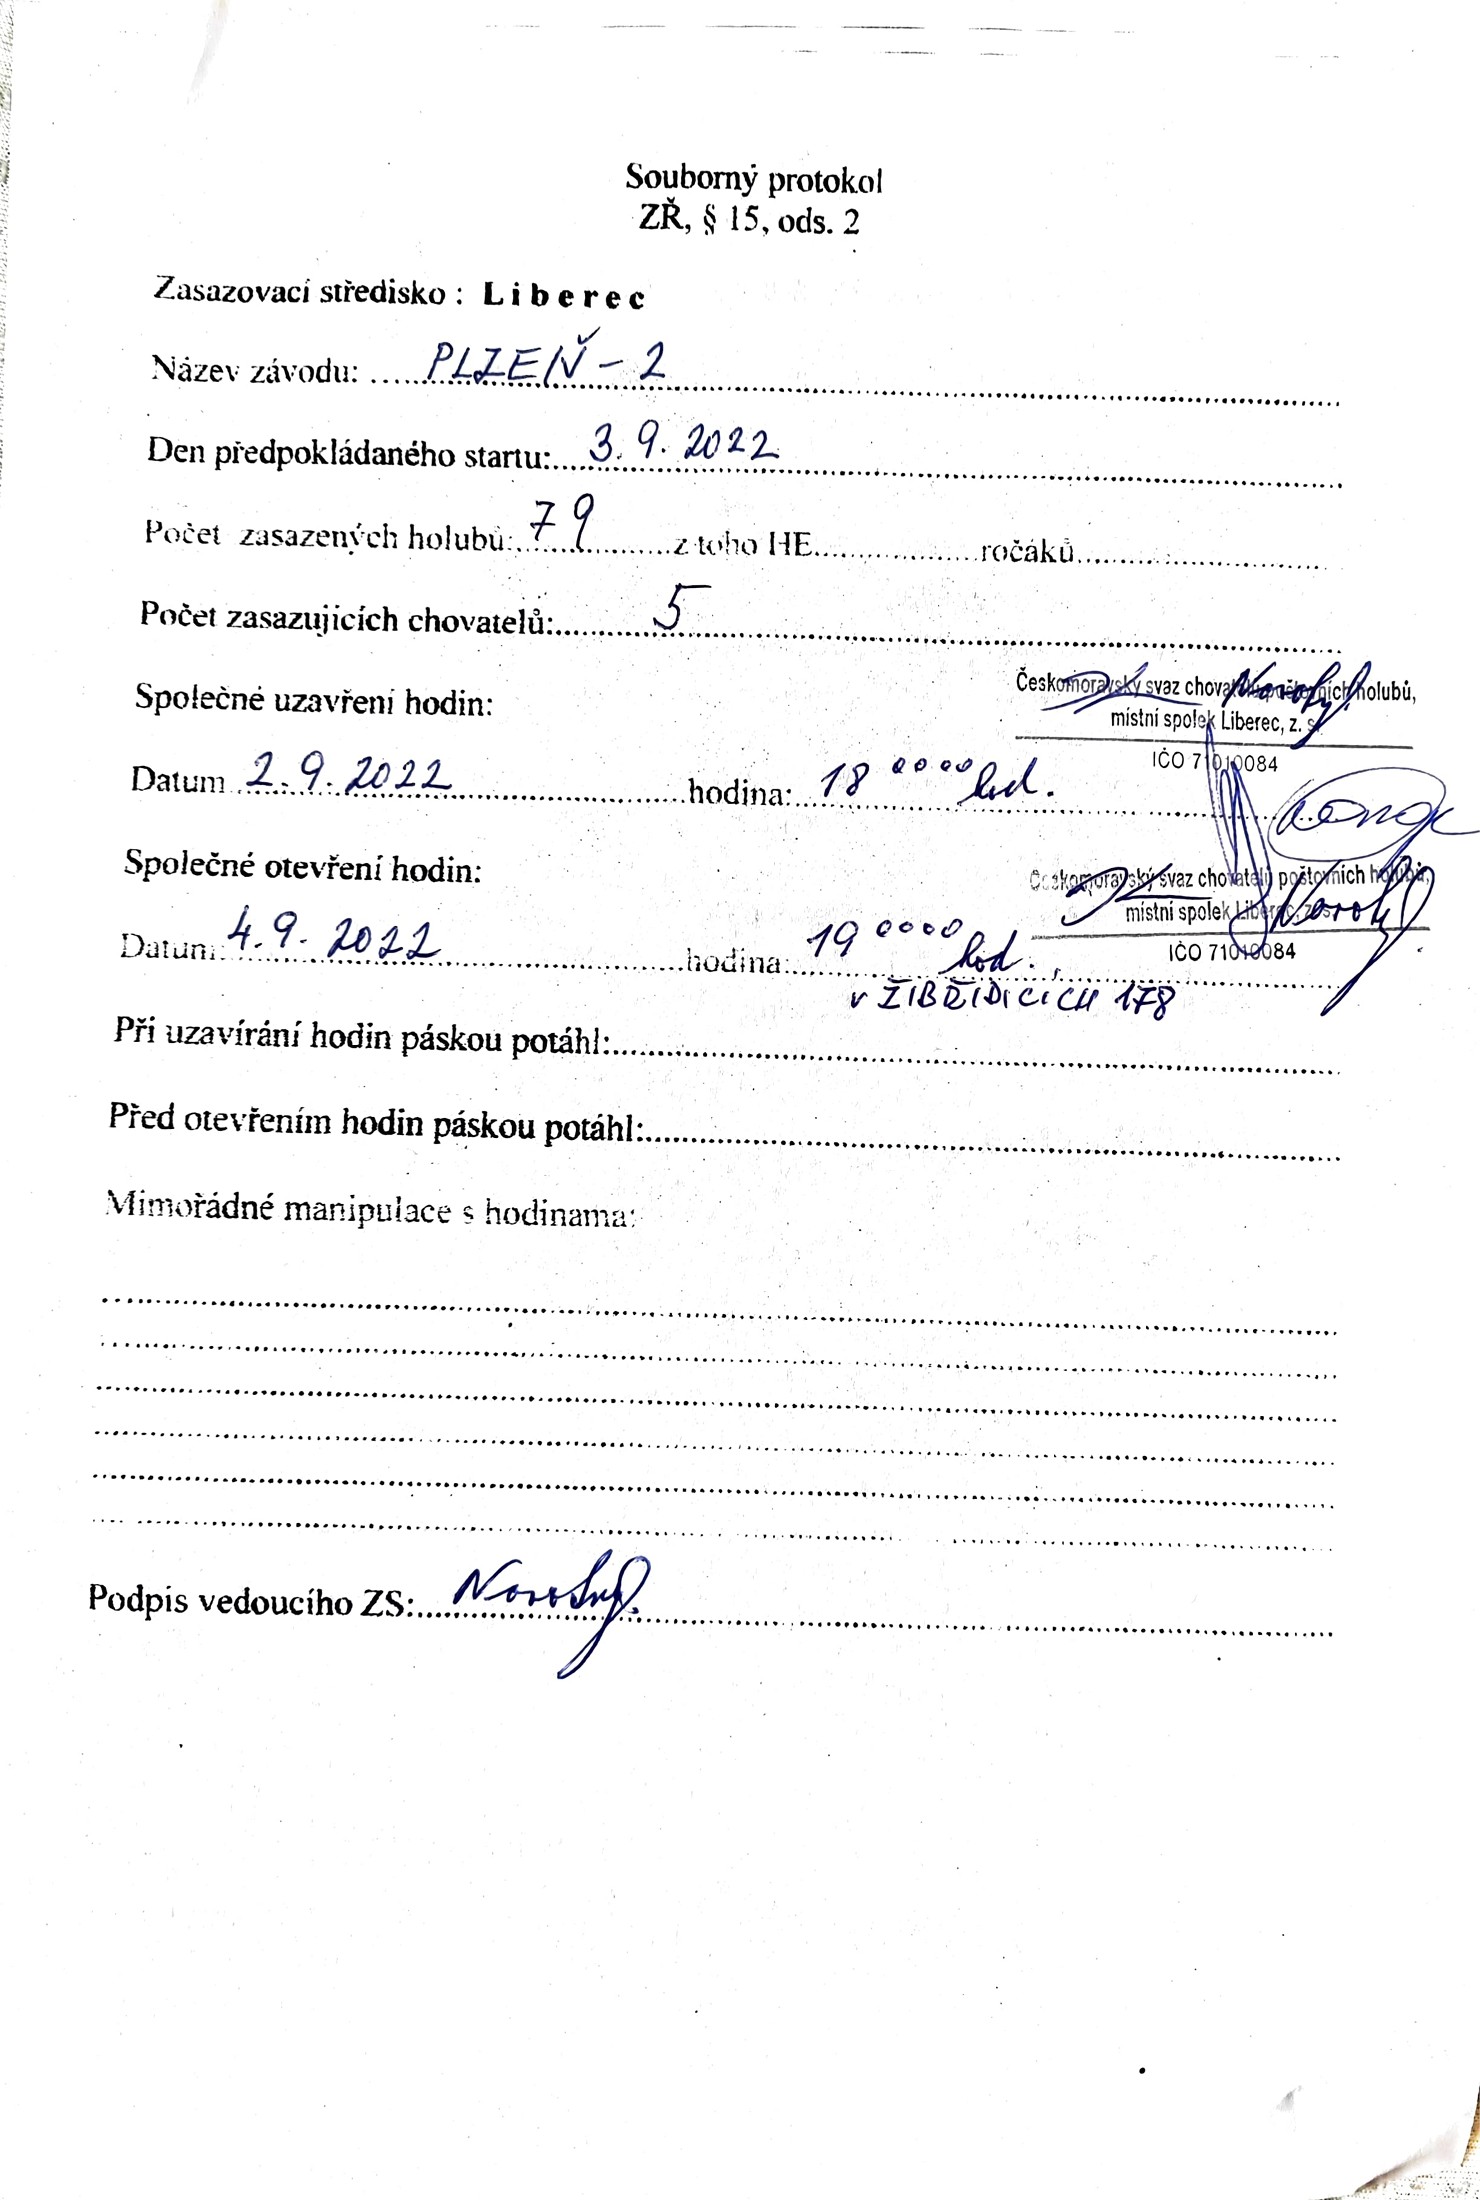 Souborný protokol
ZŘ, § 15, ods. 2
Zasazovací středisko : Liberec
Název závodu: PLZEŇ - 2
Den předpokládaného startu: 3. 9. 2022
Počet zasazených holubů: 79 z toho HE ročáků
Počet zasazujících chovatelů: 5
Společné uzavření hodin:
Českomoravský svaz chovatelů poštovních holubů,
místní spolek Liberec, z. s.
IČO 71010084
Datum 2. 9. 2022 hodina: 18 0000 hod.
Společné otevření hodin:
Českomoravský svaz chovatelů poštovních holubů,
místní spolek Liberec, z. s.
IČO 71010084
Datum: 4. 9. 2022 hodina: 19 0000 hod.
v ŽIBŘIDICÍCH 178
Při uzavírání hodin páskou potáhl:
Před otevřením hodin páskou potáhl:
Mimořádné manipulace s hodinama:
Podpis vedoucího ZS: Novotný